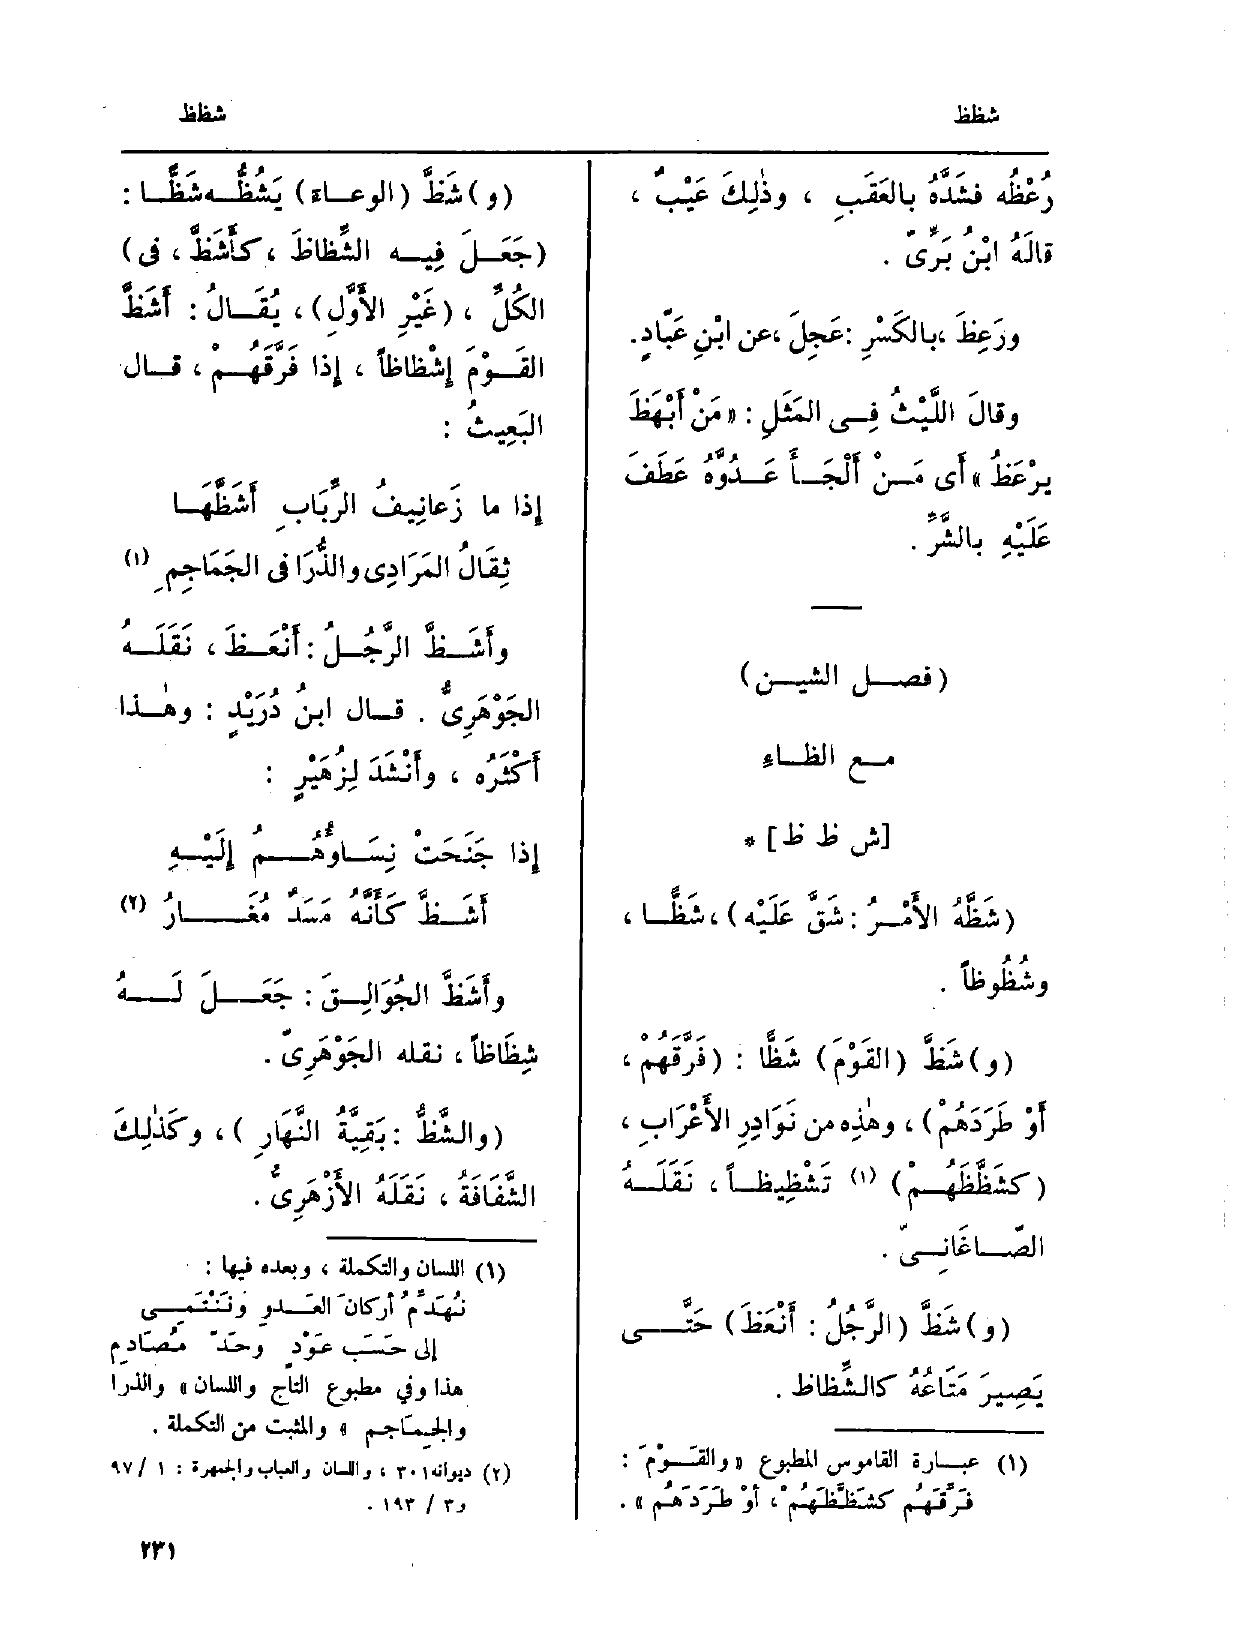 شظظ
شظظ
رُعْظُه فشدَّهُ بالعَقَبِ ، وذٰلِكَ عَيْبٌ ،
قالَهُ ابْنُ بَرِّىّ .
ورَعِظَ ،بالكَسْرِ :عَجِلَ ،عن ابْنِ عَبّادٍ.
وقالَ اللَّيْثُ فِــى المَثَلِ : « مَنْ أَبْهَظَ
يرْعَظُ » أَى مَــنْ أَلْجَــأَ عَــدُوَّهُ عَطَفَ
عَلَيْهِ بالشَّرِّ .
(فصــل الشيــن)
مــع الظــاءِ
[ش ظ ظ] *
(شَظَّهُ الأَمْــرُ : شَقَّ عَلَيْه) ، شَظًّــا ،
وشُظُوظاً .
(و) شَظَّ (القَوْمَ) شَظًّا : (فَرَّقَهُمْ ،
أَوْ طَرَدَهُمْ) ، وهٰذِه من نَوَادِرِ الأَعْرَابِ ،
(كشَظَّظَهُــمْ) (١) تَشْظِيظــاً ، نَقَلَــهُ
الصّــاغَانِــىّ .
(و) شَظَّ (الرَّجُلُ : أَنْعَظَ) حَتَّــى
يَصِيرَ مَتَاعُهُ كالشِّظاظ .
(١) عبــارة القاموس المطبوع «والقَــوْمَ :
فَرَّقَهُم كشَظَّظَهُمْ ، أَوْ طَرَدَهُم » .
(و) شَظَّ (الوعــاءَ) يَشُظُّــه شَظًّــا :
(جَعَــلَ فِيــه الشِّظاظَ ، كأَشَظَّ ، فى)
الكُلِّ ، (غَيْرِ الأَوَّلِ) ، يُقَــالُ : أَشَظَّ
القَــوْمَ إِشْظاظاً ، إِذا فَرَّقَهُــمْ ، قــال
البَعِيثُ :
إذا ما زَعانِيفُ الرِّبَابِ أَشَظَّهَــا
ثِقَالُ المَرَادِى والذُّرَا فى الجَمَاجِمِ (١)
وأَشَــظَّ الرَّجُــلُ : أَنْعَــظَ ، نَقَلَــهُ
الجَوْهَرِىُّ . قــال ابنُ دُرَيْدٍ : وهٰــذا
أَكْثَرُه ، وأَنْشَدَ لِزُهَيْرٍ :
إذا جَنَحَتْ نِسَــاؤُهُــمُ إِلَيْــهِ
أَشَــظَّ كَأَنَّهُ مَسَدٌ مُغَــارُ (٢)
وأَشَظَّ الجُوَالِــقَ : جَعَــلَ لَــهُ
شِظَاظاً ، نقله الجَوْهَرِىّ .
(والشَّظُّ : بَقِيَّةُ النَّهَارِ ) ، وكَذٰلِكَ
الشَّفَافَةُ ، نَقَلَهُ الأَزْهَرِىُّ .
(١) اللسان والتكملة ، وبعده فيها :
نُهَدِّمُ أركانَ العَــدو ونَنْتَمِــى
إلى حَسَب عَوْدٍ وحَدّ مُصَادِمِ
هذا وفي مطبوع التاج واللسان» والذرا
والجمَاجم » والمثبت من التكملة .
(٢) ديوانه ٣٠١ ، واللسان والعباب والجمهرة : ١ / ٩٧
و٣ / ١٩٣ .
٢٣١